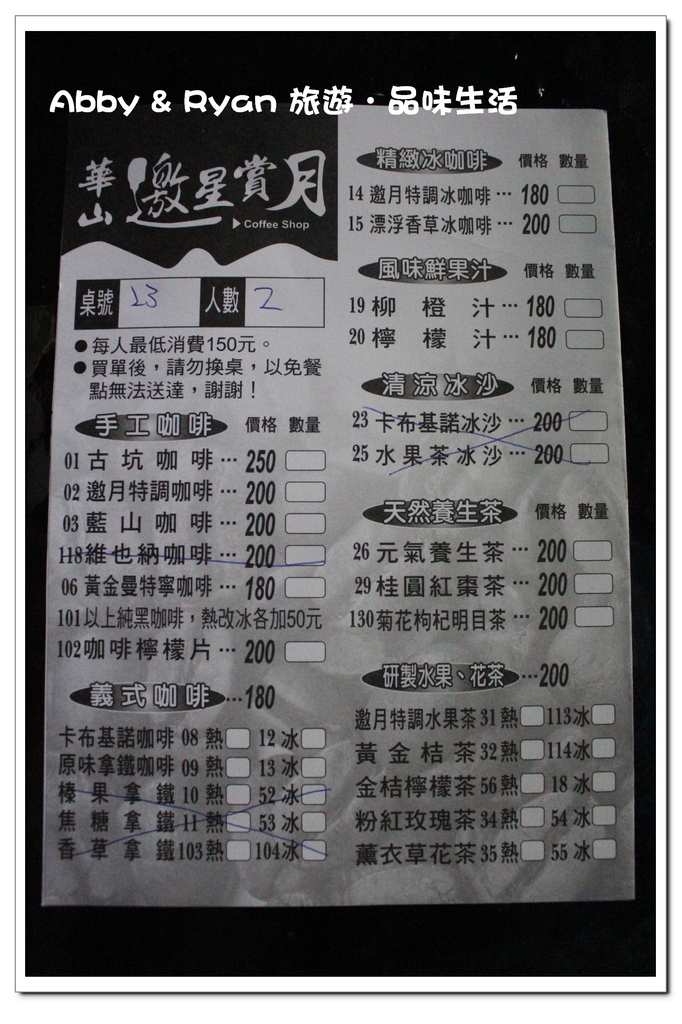 Abby & Ryan 旅遊·品味生活
華山 邀星賞月
Coffee Shop
桌號 23 人數 2
●每人最低消費150元。
●買單後，請勿換桌，以免餐
點無法送達，謝謝！
手工咖啡 價格 數量
01 古坑咖啡…250
02 邀月特調咖啡…200
03 藍山咖啡…200
118維也納咖啡…200
06 黃金曼特寧咖啡…180
101以上純黑咖啡，熱改冰各加50元
102咖啡檸檬片…200
義式咖啡…180
卡布基諾咖啡 08 熱 12 冰
原味拿鐵咖啡 09 熱 13 冰
榛果拿鐵 10 熱 52 冰
焦糖拿鐵 11 熱 53 冰
香草拿鐵 103 熱 104 冰
精緻冰咖啡 價格 數量
14 邀月特調冰咖啡…180
15 漂浮香草冰咖啡…200
風味鮮果汁 價格 數量
19 柳橙汁…180
20 檸檬汁…180
清涼冰沙 價格 數量
23 卡布基諾冰沙…200
25 水果茶冰沙…200
天然養生茶 價格 數量
26 元氣養生茶…200
29 桂圓紅棗茶…200
130菊花枸杞明目茶…200
研製水果、花茶…200
邀月特調水果茶 31 熱 113 冰
黃金桔茶 32 熱 114 冰
金桔檸檬茶 56 熱 18 冰
粉紅玫瑰茶 34 熱 54 冰
薰衣草花茶 35 熱 55 冰